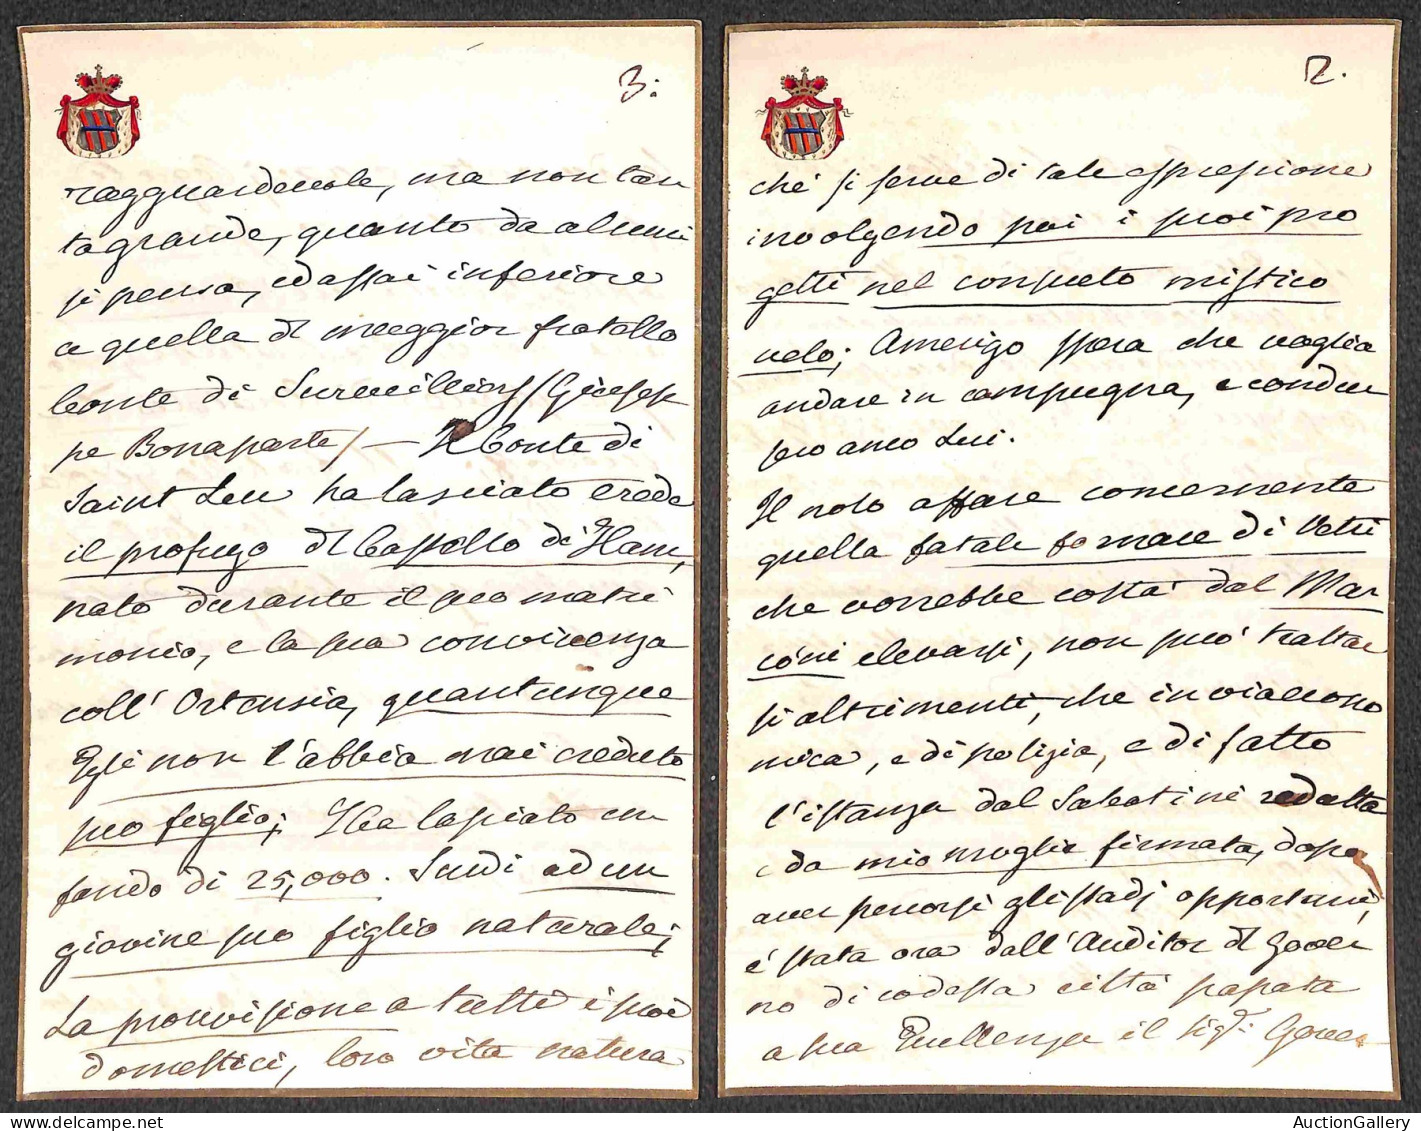 3.
ragguardevole, ma non tan
ta grande, quanto da alcuni
si pensa, ed assai inferiore
a quella del maggior fratello
Conte di Survilliers /Giusep
pe Bonaparte/ — Il Conte di
Saint Leu ha lasciato erede
il profugo del Castello di Ham,
nato durante il suo matri
monio, e la sua convivenza
coll' Ortensia, quantunque
Egli non l'abbia mai creduto
suo figlio; Ha lasciato un
fondo di 25,000. Scudi ad un
giovine suo figlio naturale;
La provvisione a tutti i suoi
domestici, loro vita natura
2.
ché si serve di tale espressione
involgendo poi i suoi pro
getti nel consueto mistico
velo; Amerigo spera che voglia
andare in campagna, e condur
seco anco Lui.
Il noto affare concernente
quella fatale fornace di Vetri
che vorrebbe costà dal Mar
cóni elevarsi, non può trattar
si altrimenti, che in via econo
mica, e di polizia, e di fatto
l'istanza dal Sabatini redatta
e da mia moglie firmata, dopo
aver percorsi gli stadj opportuni,
è stata ora dall'Auditor del Gover
no di codesta città passata
a sua Eccellenza il Sigr: Gover
AuctionGallery